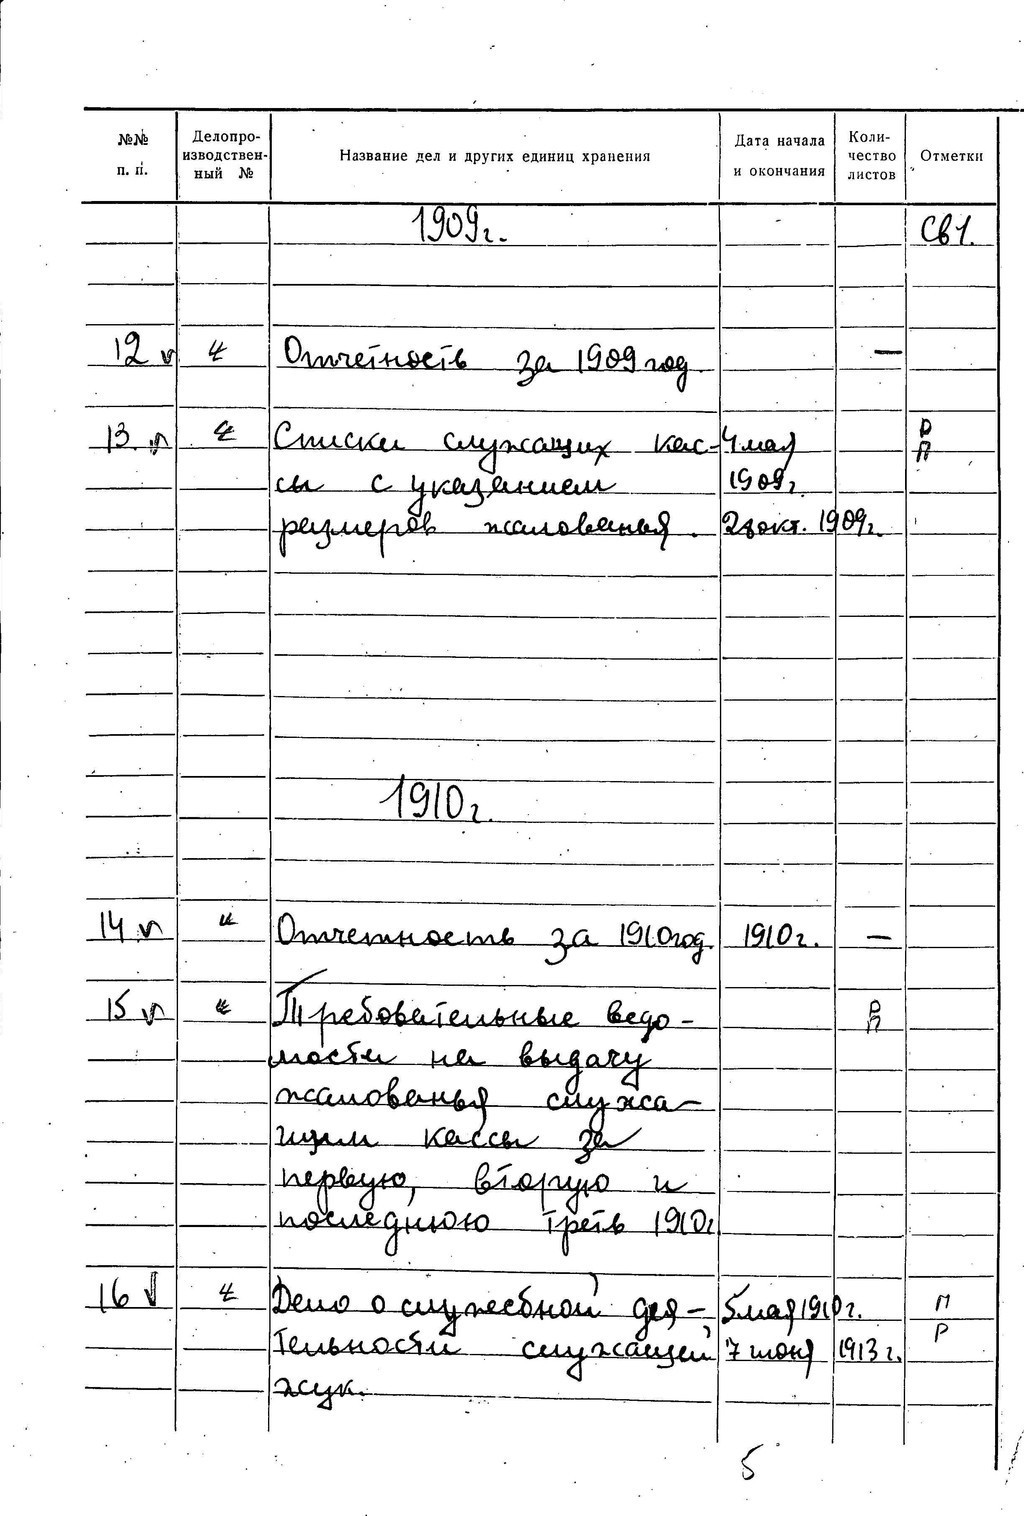 №№ п. п. Делопро-изводствен-ный № Название дел и других единиц хранения Дата начала и окончания Коли-чество листов Отметки
1909г. Св1.
12 Отчетность за 1909 год. —
13. Списки служащих кас- 4 мая Р П
сы с указанием 1909г.
размеров жалованья. 28 окт. 1909г.
1910г.
14 Отчетность за 1910 год. 1910г. —
15 Требовательные ведо- Р П
мости на выдачу
жалованья служа-
щим кассы за
первую, вторую и
последнюю треть 1910г
16 Дело о служебной дея- 5 мая 1910г. П
тельности служащей 7 июня 1913г. Р
Жук.
5